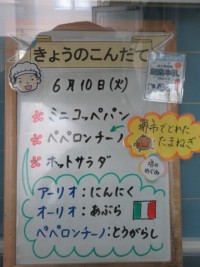 きょうのこんだて
6月10日(火)
ミニコッペパン
ペペロンチーノ
ホットサラダ
堺市でとれた
たまねぎ
堺の
めぐみ
アーリオ:にんにく
オーリオ:あぶら
ペペロンチーノ:とうがらし